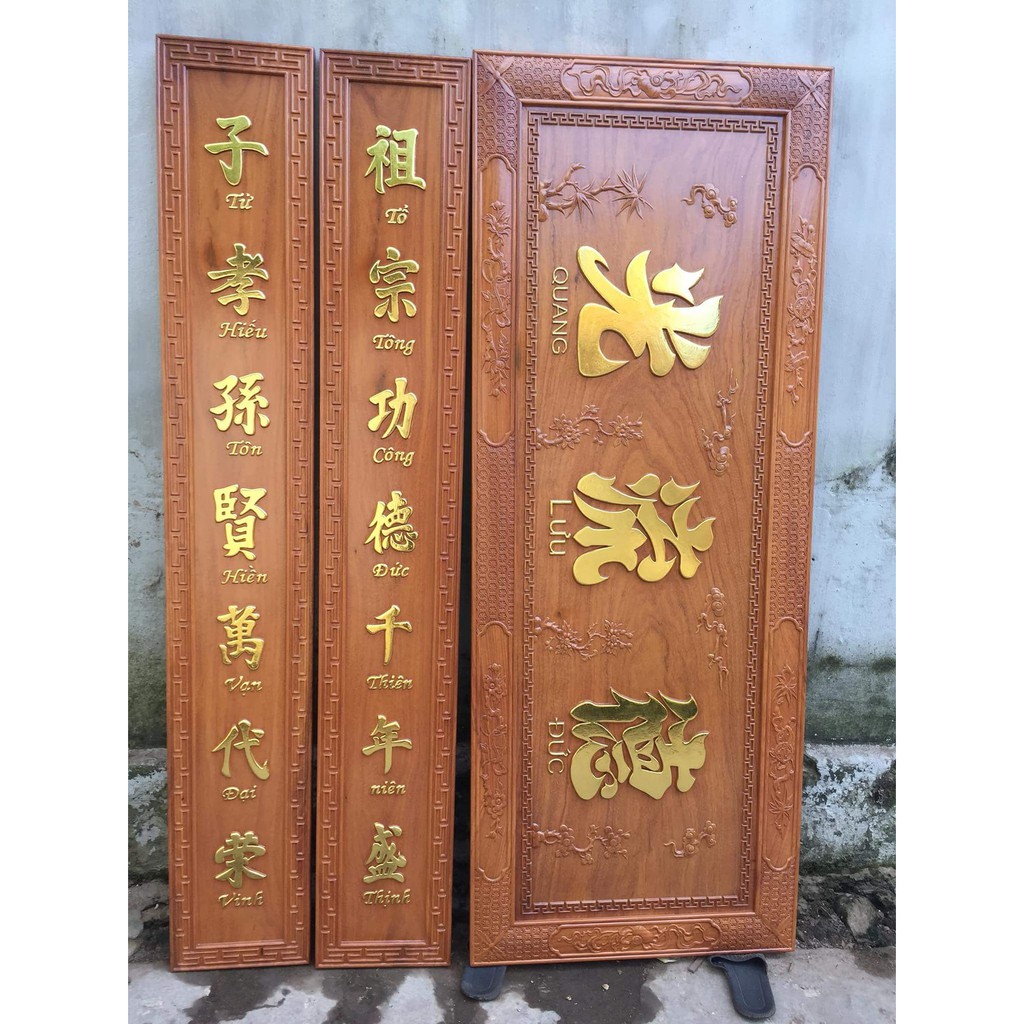 子
Tử
孝
Hiếu
孫
Tôn
賢
Hiền
萬
Vạn
代
Đại
荣
Vinh
祖
Tổ
宗
Tông
功
Công
德
Đức
千
Thiên
年
niên
盛
Thịnh
光流德
QUANG Lưu ĐỨC